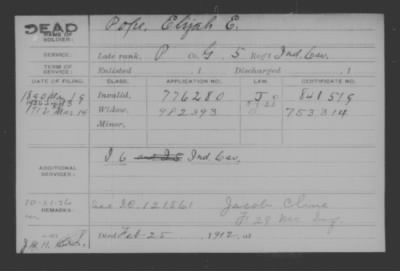 DEAD
NAME OF SOLDIER:
Pope, Elijah E.
SERVICE:
Late rank, P Co. G, 5 Reg't Ind. Cav.
TERM OF SERVICE:
Enlisted , 1 Discharged , 1
DATE OF FILING. CLASS. APPLICATION NO. LAW. CERTIFICATE NO.
1890 Invalid, 776280 J 841519
1912 Mar 14 Widow, 982393 753314
Minor,
ADDITIONAL SERVICES:
I 6 Ind Cav.
10-31-36
REMARKS:
121561 Jacob Cline
F 29
Died Feb-25 , 1912, at